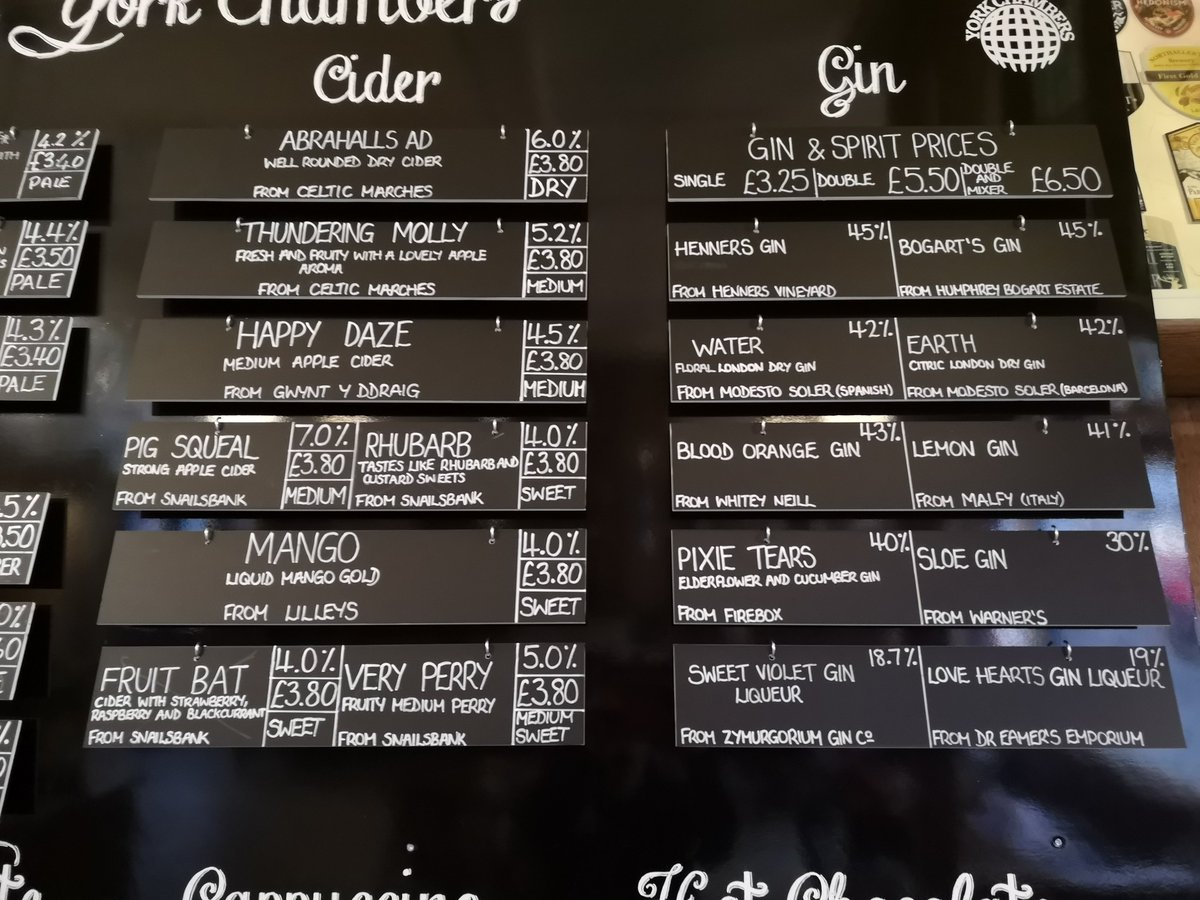 York Chambers
YORK CHAMBERS
Cider
Gin
4.2%
£3.40
PALE
4.4%
£3.50
PALE
4.3%
£3.40
PALE
ABRAHALLS AD
WELL ROUNDED DRY CIDER
FROM CELTIC MARCHES
6.0%
£3.80
DRY
THUNDERING MOLLY
FRESH AND FRUITY WITH A LOVELY APPLE
AROMA
FROM CELTIC MARCHES
5.2%
£3.80
MEDIUM
HAPPY DAZE
MEDIUM APPLE CIDER
FROM GWYNT Y DDRAIG
4.5%
£3.80
MEDIUM
PIG SQUEAL
STRONG APPLE CIDER
FROM SNAILSBANK
7.0%
£3.80
MEDIUM
RHUBARB
TASTES LIKE RHUBARB AND
CUSTARD SWEETS
FROM SNAILSBANK
4.0%
£3.80
SWEET
MANGO
LIQUID MANGO GOLD
FROM LILLEYS
4.0%
£3.80
SWEET
FRUIT BAT
CIDER WITH STRAWBERRY,
RASPBERRY AND BLACKCURRANT
FROM SNAILSBANK
4.0%
£3.80
SWEET
VERY PERRY
FRUITY MEDIUM PERRY
FROM SNAILSBANK
5.0%
£3.80
MEDIUM
SWEET
GIN & SPIRIT PRICES
SINGLE £3.25 DOUBLE £5.50 DOUBLE AND MIXER £6.50
HENNERS GIN 45%
FROM HENNERS VINEYARD
BOGART'S GIN 45%
FROM HUMPHREY BOGART ESTATE
WATER 42%
FLORAL LONDON DRY GIN
FROM MODESTO SOLER (SPANISH)
EARTH 42%
CITRIC LONDON DRY GIN
FROM MODESTO SOLER (BARCELONA)
BLOOD ORANGE GIN 43%
FROM WHITEY NEILL
LEMON GIN 41%
FROM MALFY (ITALY)
PIXIE TEARS 40%
ELDERFLOWER AND CUCUMBER GIN
FROM FIREBOX
SLOE GIN 30%
FROM WARNER'S
SWEET VIOLET GIN 18.7%
LIQUEUR
FROM ZYMURGORIUM GIN Co
LOVE HEARTS GIN LIQUEUR 19%
FROM DR EAMER'S EMPORIUM
Cappuccino
Hot Chocolate
HEDONISM
First Gold